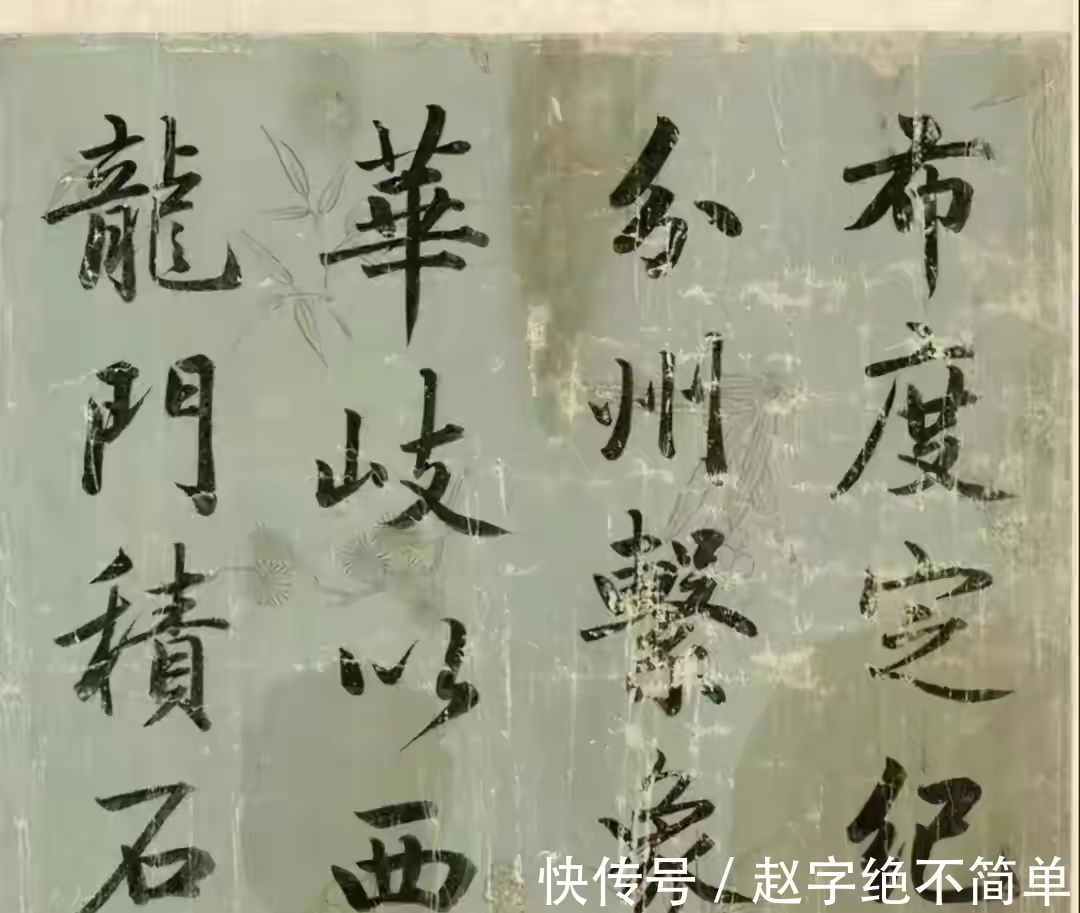 布度定紀
分州繫象
華岐以西
龍門積石
快传号 / 赵字绝不简单